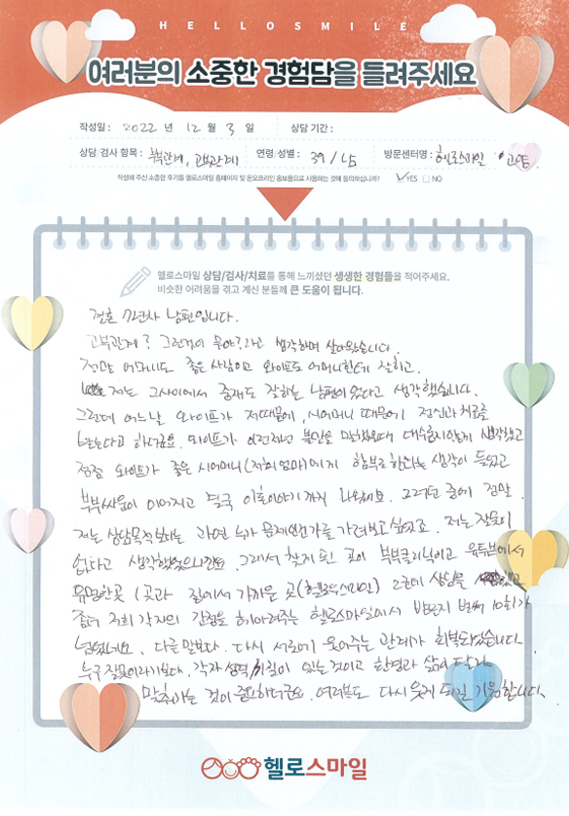 HELLOSMILE
여러분의 소중한 경험담을 들려주세요
작성일 : 2022 년 12 월 3 일 상담 기간 :
상담/검사 항목 : 부부관계, 고부관계 연령/성별 : 39 / 남 방문센터명 : 헬로스마일
작성해 주신 소중한 후기를 헬로스마일 홈페이지 및 온오프라인 홍보용으로 사용하는 것에 동의하십니까? YES NO
헬로스마일 상담/검사/치료를 통해 느끼셨던 생생한 경험들을 적어주세요.
비슷한 어려움을 겪고 계신 분들께 큰 도움이 됩니다.
결혼 7년차 남편입니다.
고부관계? 그런것이 뭐야?라고 생각하며 살아왔습니다.
정말 어머니도 좋은 사람이고 와이프도 어머니한테 잘하고.
저는 그사이에서 중재도 잘하는 남편이었다고 생각했습니다.
그런데 어느날 와이프가 저때문에, 시어머니 때문에 정신과 치료를
받는다고 하더군요. 와이프가 이전까진 불만을 말했을때 대수롭지않게 생각했고
점점 와이프가 좋은 시어머니(저희엄마)에게 함부로한다는 생각이 들었고
부부싸움이 이어지고 결국 이혼이야기까지 나왔어요. 그러던 중에 정말
저는 상담목적보다는 과연 누가 문제인건가를 가려보고싶었죠. 저는 잘못이
없다고 생각했었으니깐요. 그래서 찾게 된 곳이 부부클리닉이고 유튜브에서
유명한곳 1곳과 집에서 가까운 곳(헬로스마일) 2곳에 상담을
좀더 저희 각자의 감정을 헤아려주는 헬로스마일에서 받은지 벌써 10회가
넘었네요. 다른말보다. 다시 서로에게 웃어주는 관계가 회복되었습니다.
누구 잘못이라기보다. 각자 성격, 기질이 있는것이고 환경과 삶이 달라
맞춰가는 것이 중요하더군요. 여러분도 다시 웃게 되길 기원합니다.
헬로스마일